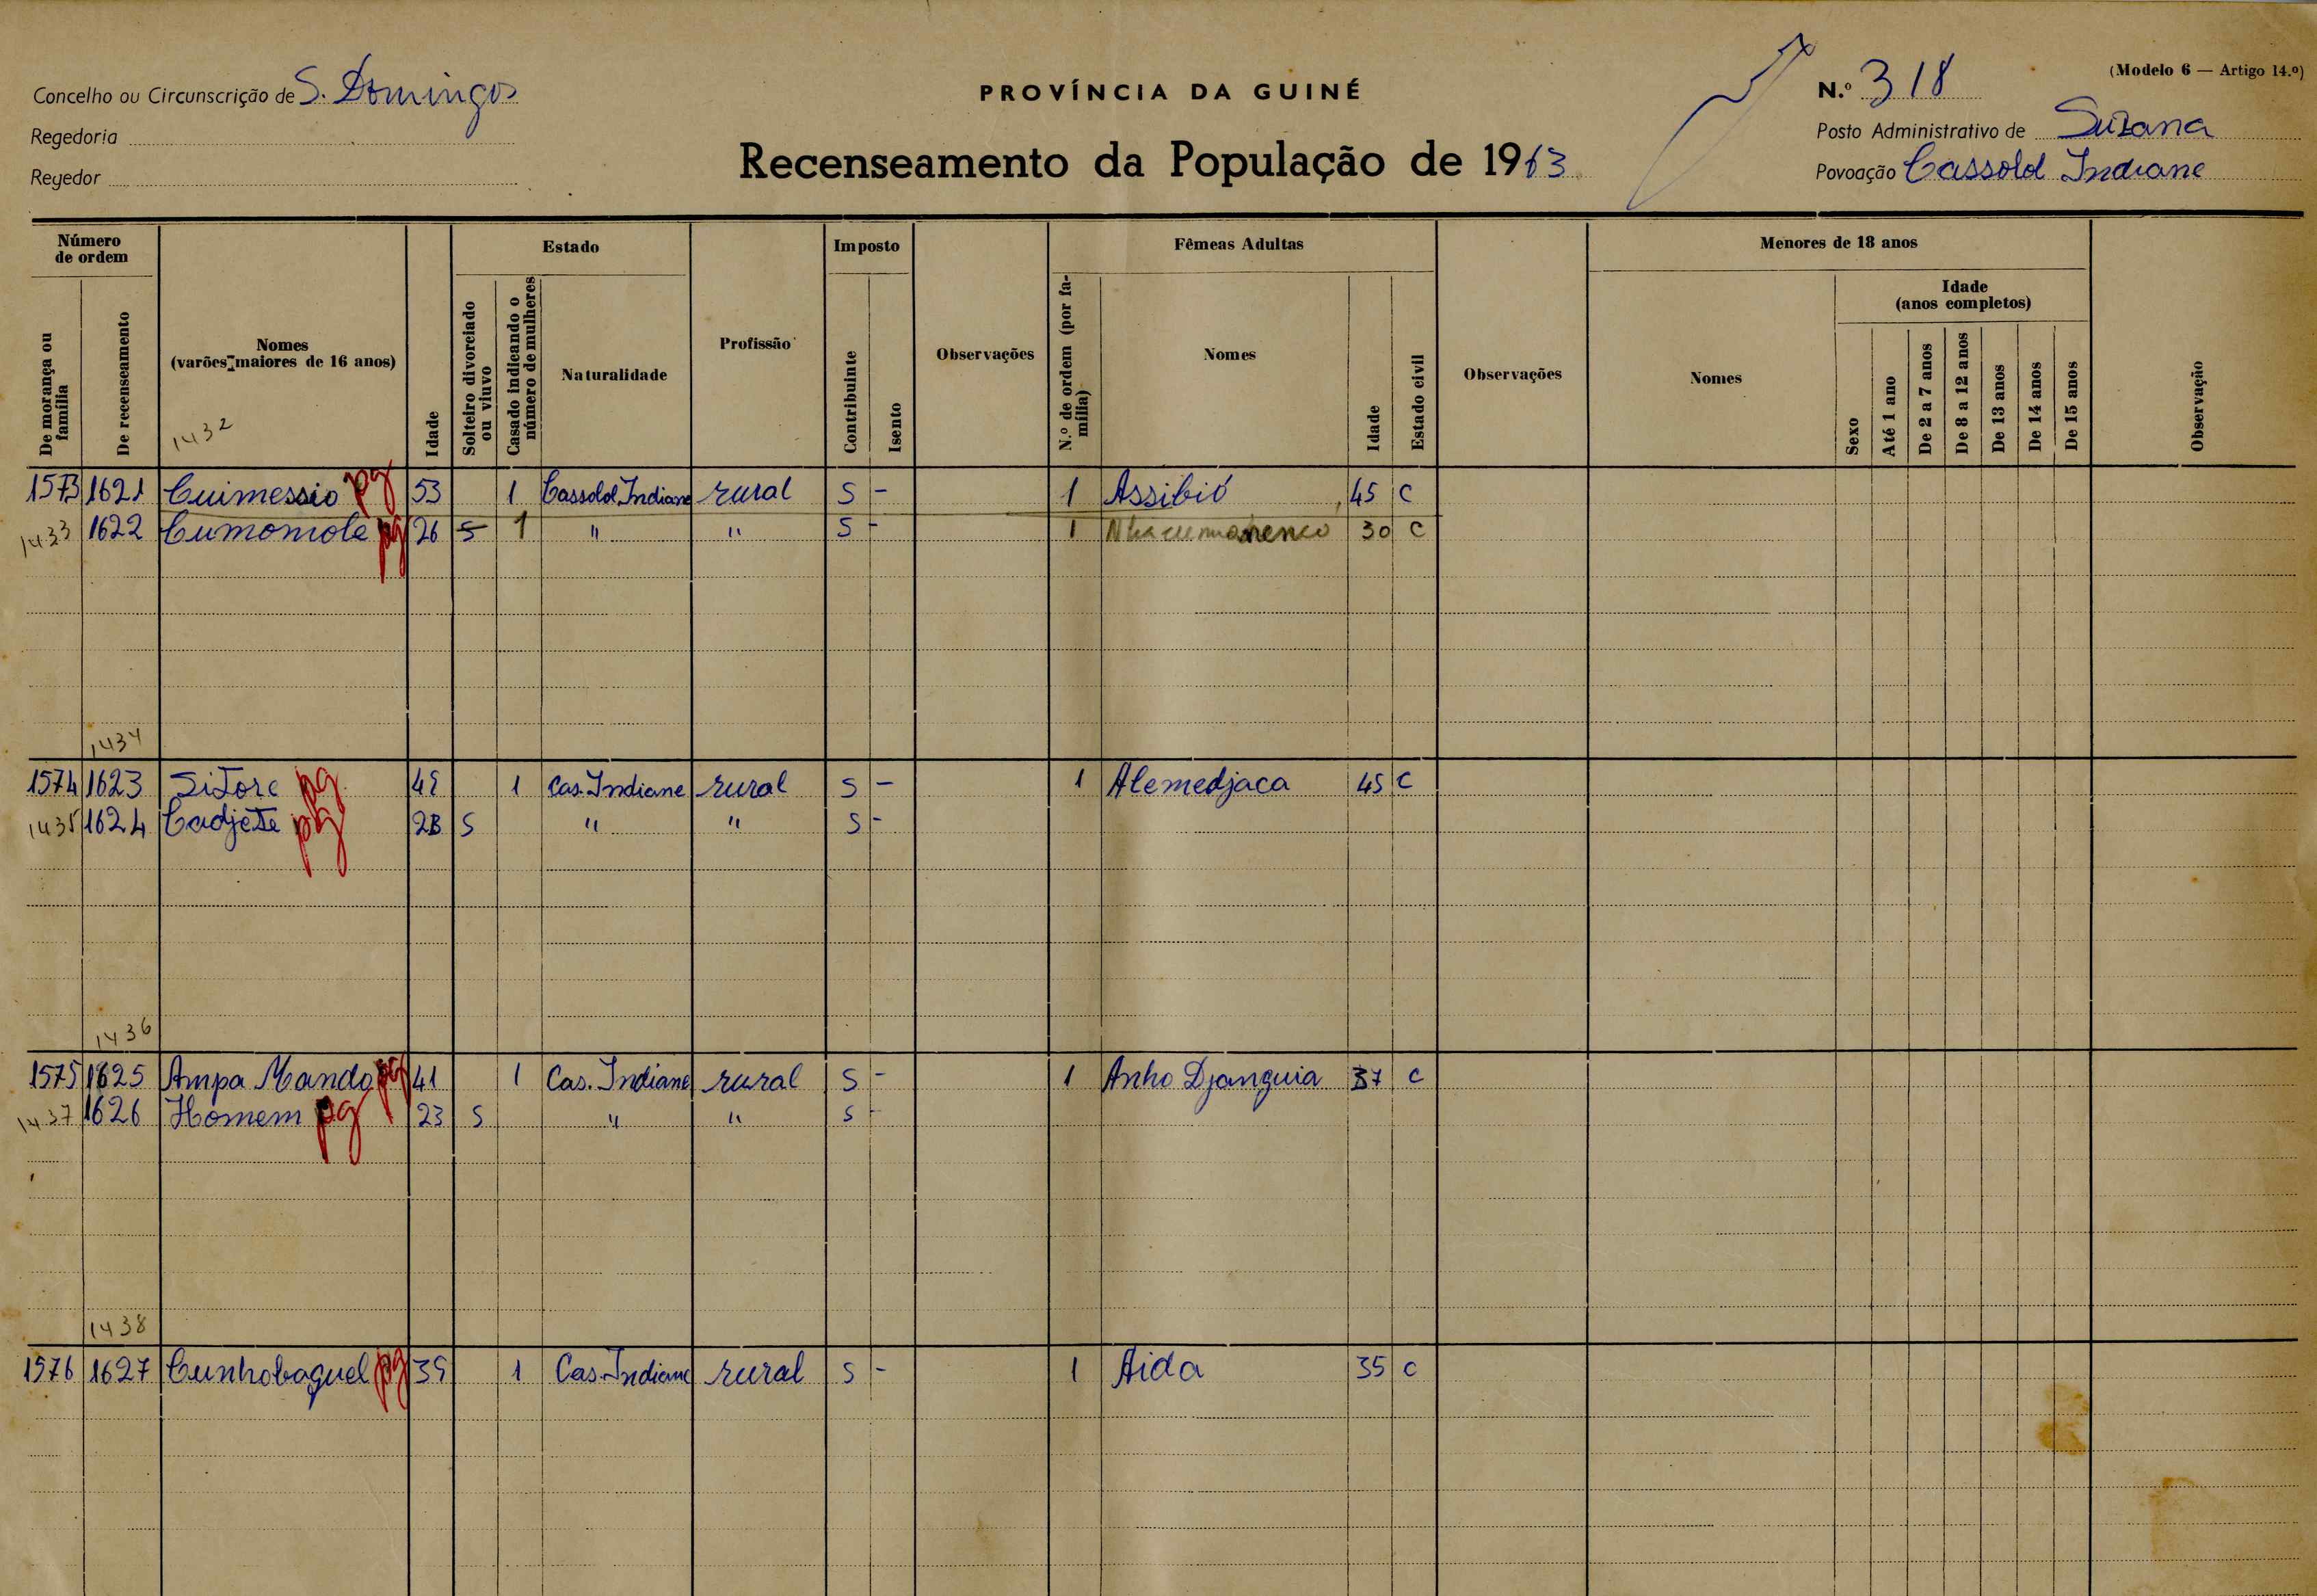 Concelho ou Circunscrição de S. Domingos
Regedoria
Regedor
PROVÍNCIA DA GUINÉ
Recenseamento da População de 1963
(Modelo 6 — Artigo 14.º)
N.º 318
Posto Administrativo de Suzana
Povoação Cassolol Indiane
Número de ordem
De morança ou família
De recenseamento
Nomes (varões maiores de 16 anos)
1432
Idade
Estado
Solteiro divorciado ou viuvo
Casado indicando o número de mulheres
Naturalidade
Profissão
Imposto
Contribuinte
Isento
Observações
Fêmeas Adultas
N.º de ordem (por família)
Nomes
Idade
Estado civil
Observações
Menores de 18 anos
Nomes
Sexo
Idade (anos completos)
Até 1 ano
De 2 a 7 anos
De 8 a 12 anos
De 13 anos
De 14 anos
De 15 anos
Observação
1573 1621 Cuimessio pg 53 1 Cassolol Indiane rural S - 1 Assibió 45 C
1433 1622 Cumomole pg 26 S 1 " " S - 1 30 C
1434
1574 1623 Sitore pg 1 Cas. Indiane rural S - 1 Alemedjaca 45 C
1435 1624 Cadjete pg S " " S -
1436
1575 1625 Ampa Mando pg 41 1 Cas. Indiane rural S - 1 Anho Djanguia 37 C
1437 1626 Homem pg 23 S " " S -
1438
1576 1627 Cunhobaguel pg 39 1 Cas. Indiane rural S - 1 Aida 35 C